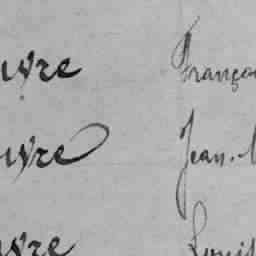 uvre França
uvre Jean.
uvre Louis